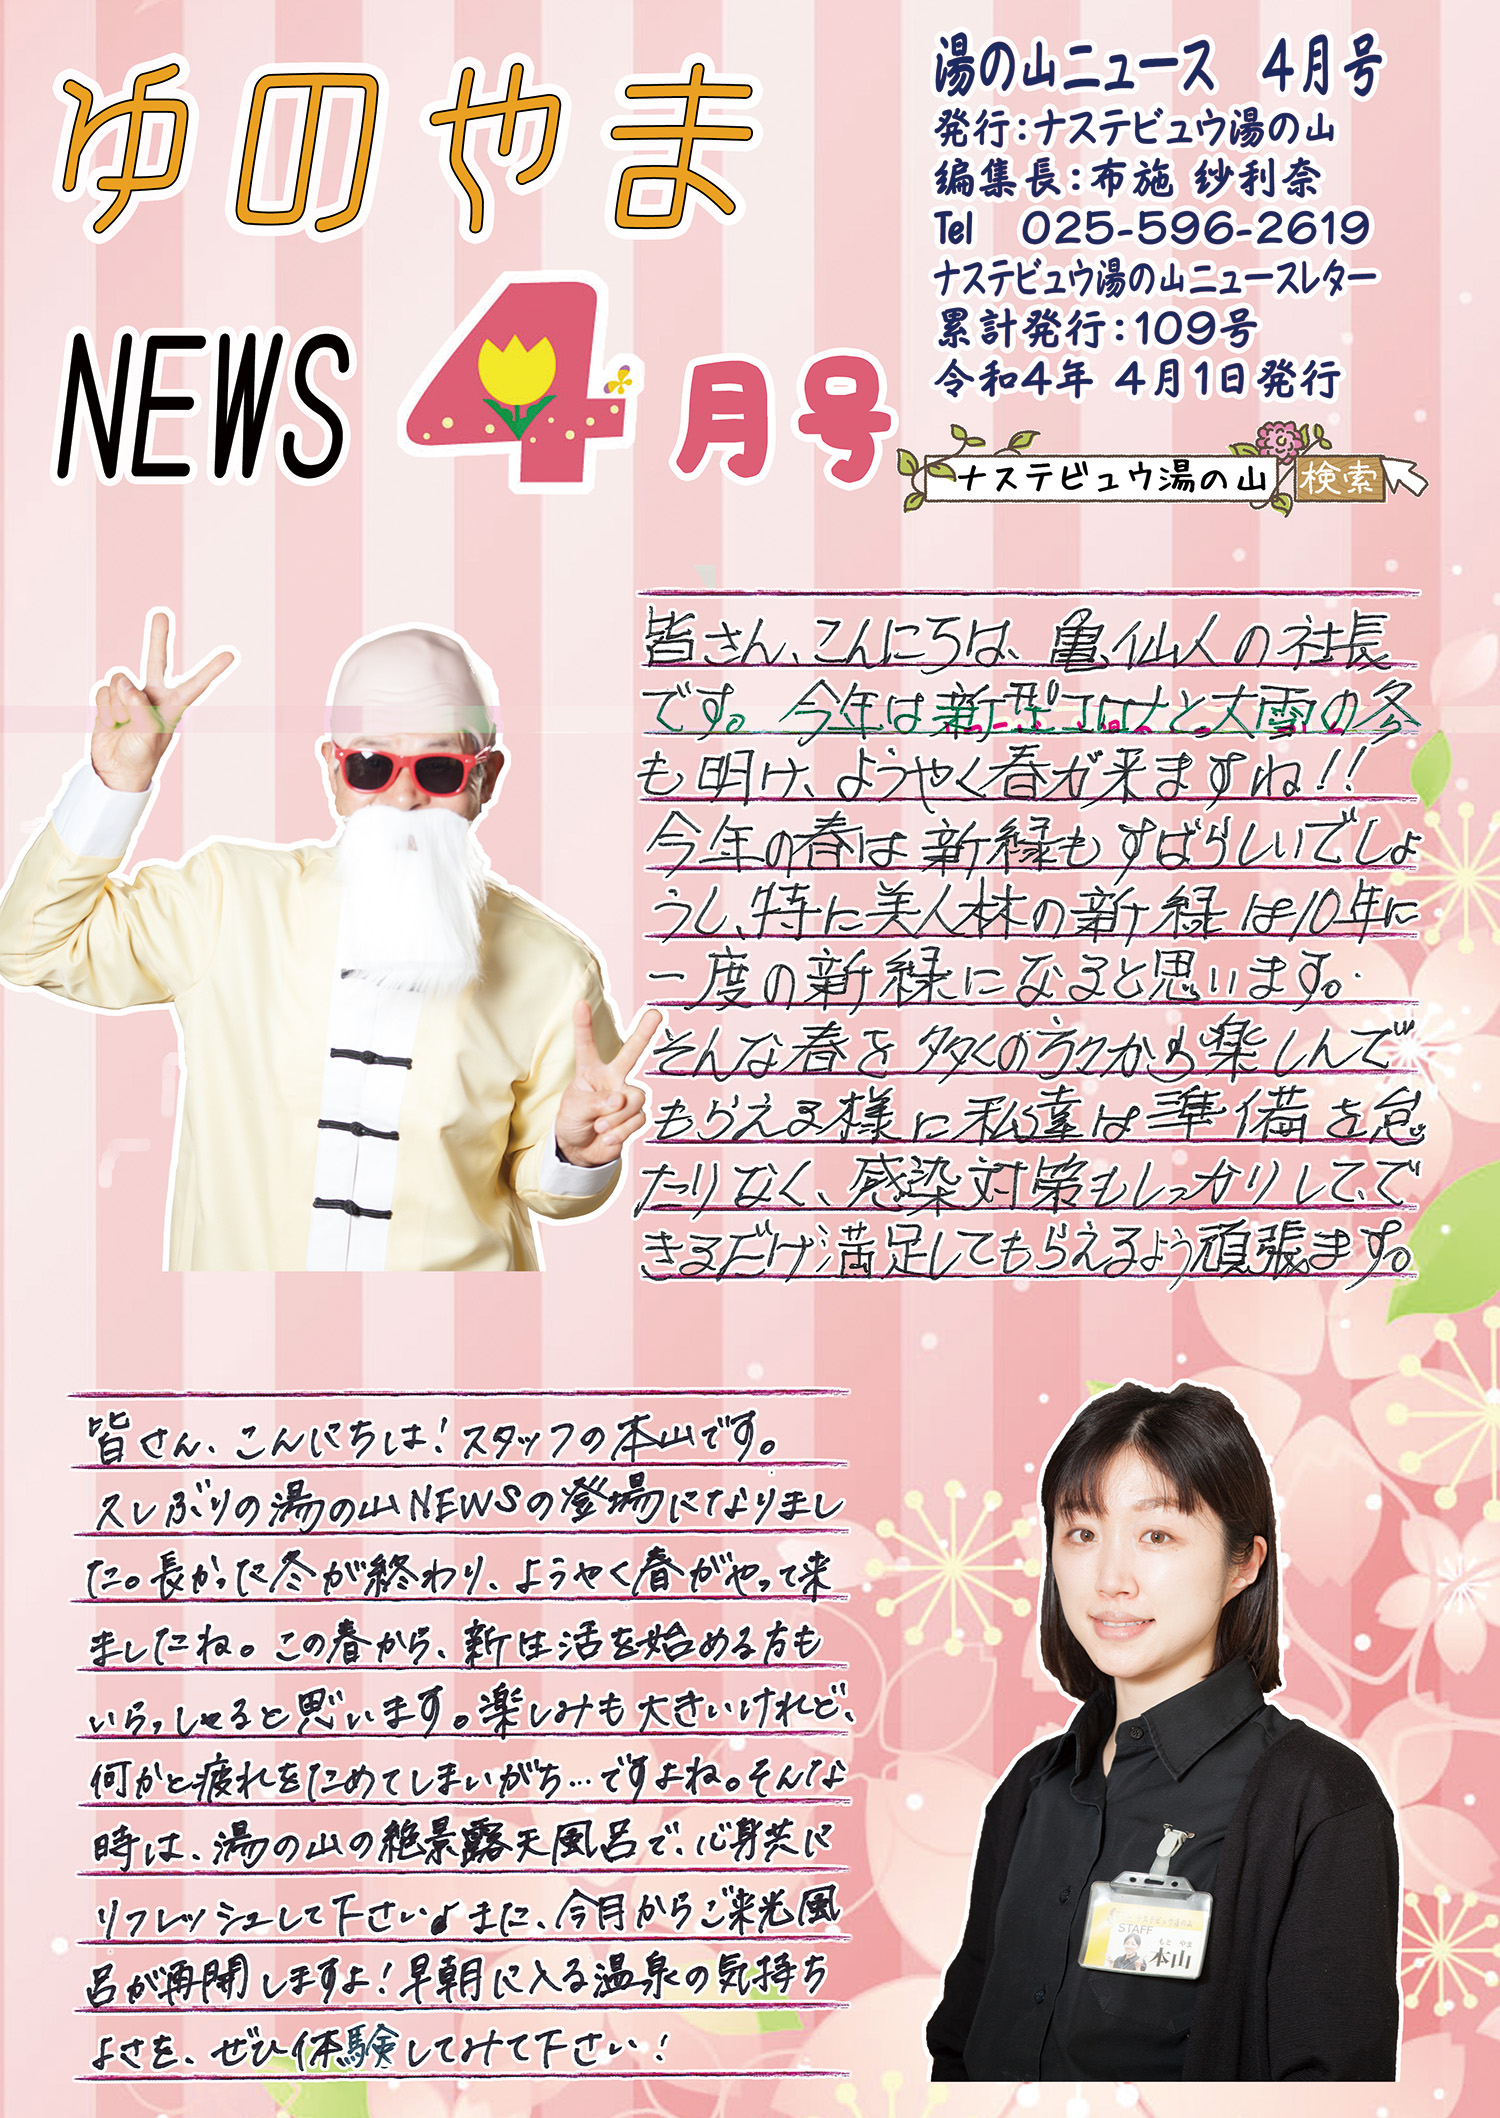 ゆのやま
NEWS 4月号
湯の山ニュース 4月号
発行:ナステビュウ湯の山
編集長:布施 紗利奈
Tel 025-596-2619
ナステビュウ湯の山ニュースレター
累計発行:109号
令和4年 4月1日発行
ナステビュウ湯の山 検索
皆さん、こんにちは、亀仙人の社長
です。今年は新型コロナと大雪の冬
も明け、ようやく春が来ますね!!
今年の春は新緑もすばらしいでしょ
うし、特に美人林の新緑は10年に
一度の新緑になると思います。
そんな春を多くの方々から楽しんで
もらえる様に私達は準備を怠
たりなく、感染対策もしっかりして、で
きるだけ満足してもらえるよう頑張ます。
皆さん、こんにちは!スタッフの本山です。
久しぶりの湯の山NEWSの登場になりまし
た。長かった冬が終わり、ようやく春がやって来
ましたね。この春から、新生活を始める方も
いらっしゃると思います。楽しみも大きいけれど、
何かと疲れをためてしまいがち…ですよね。そんな
時は、湯の山の絶景露天風呂で、心身共に
リフレッシュして下さい♪また、今月からご来光風
呂が再開しますよ!早朝に入る温泉の気持ち
よさを、ぜひ体験してみて下さい!
STAFF
もと やま
本山